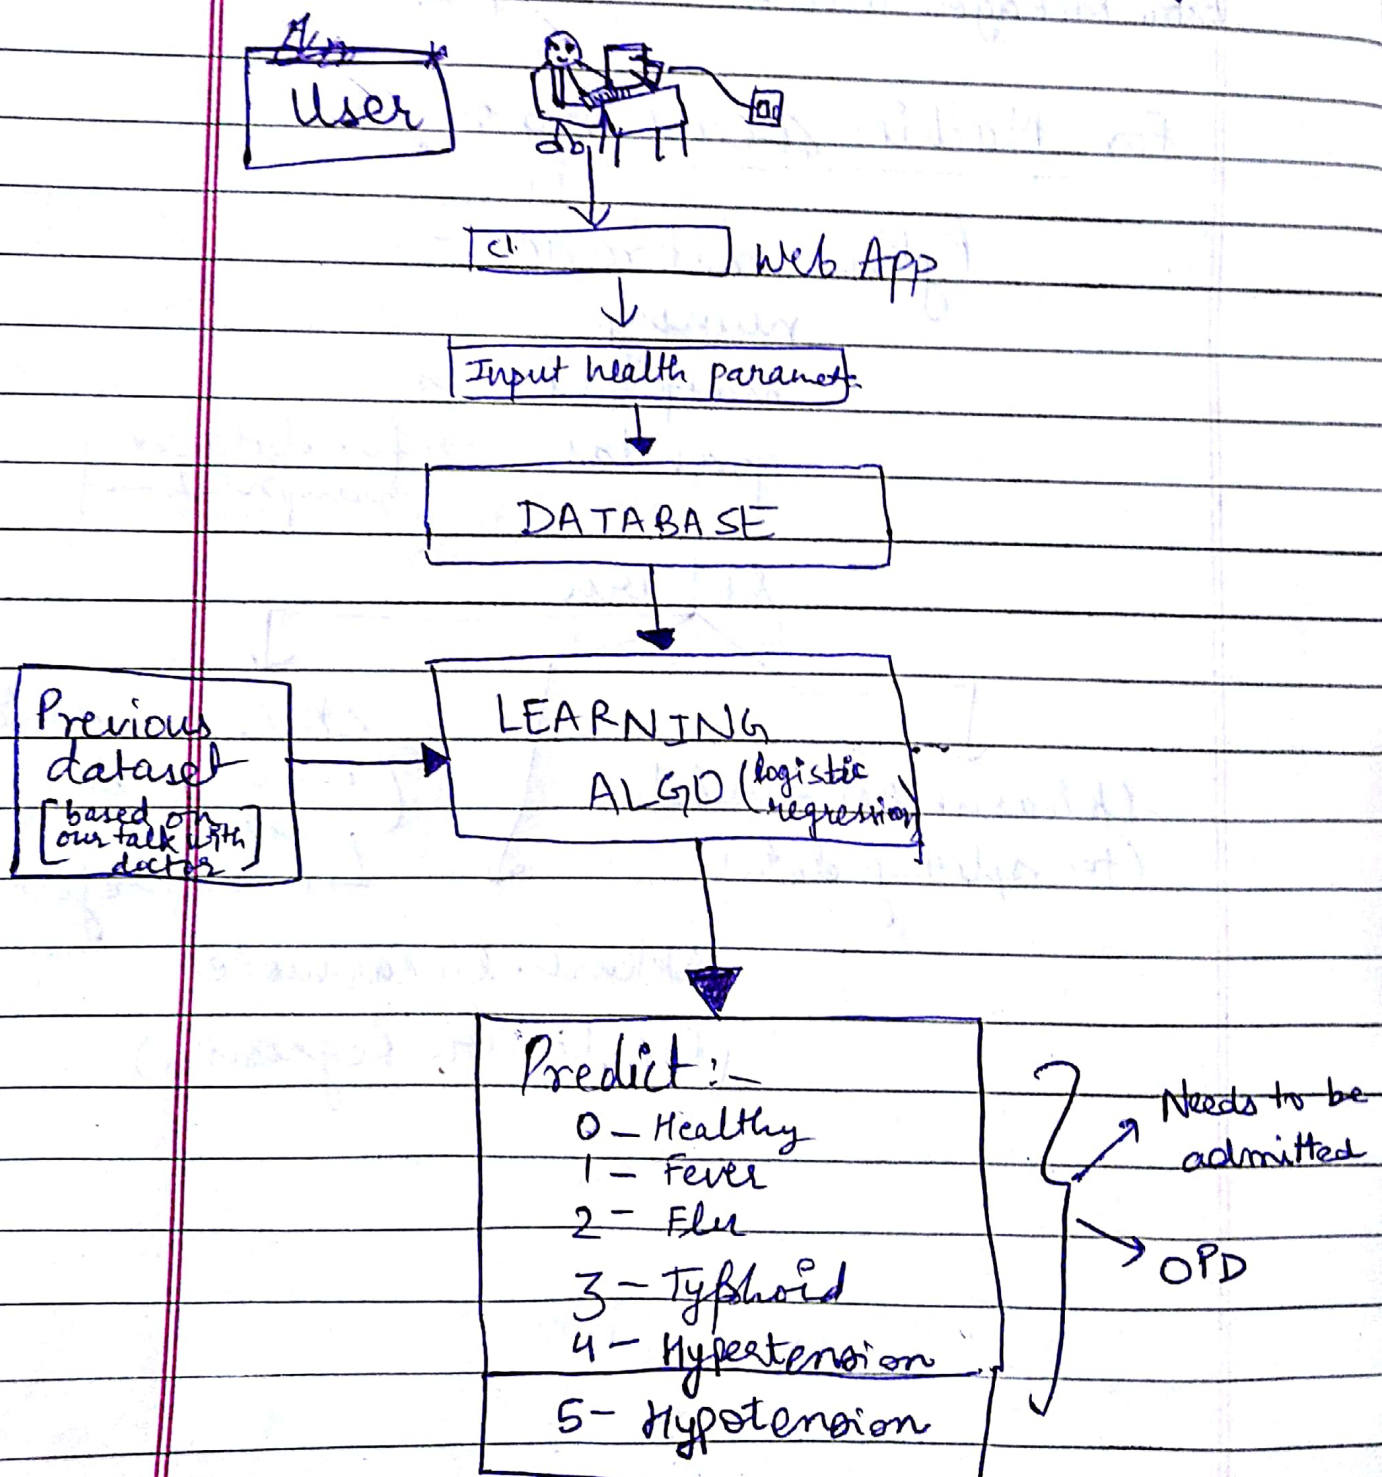 User
Web App
Input health paramet.
DATABASE
Previous
dataset
[based on
our talk with
doctor]
LEARNING
ALGO (logistic
regression)
Predict :-
0 - Healthy
1 - Fever
2 - Flu
3 - Typhoid
4 - Hypertension
5 - Hypotension
Needs to be
admitted
OPD